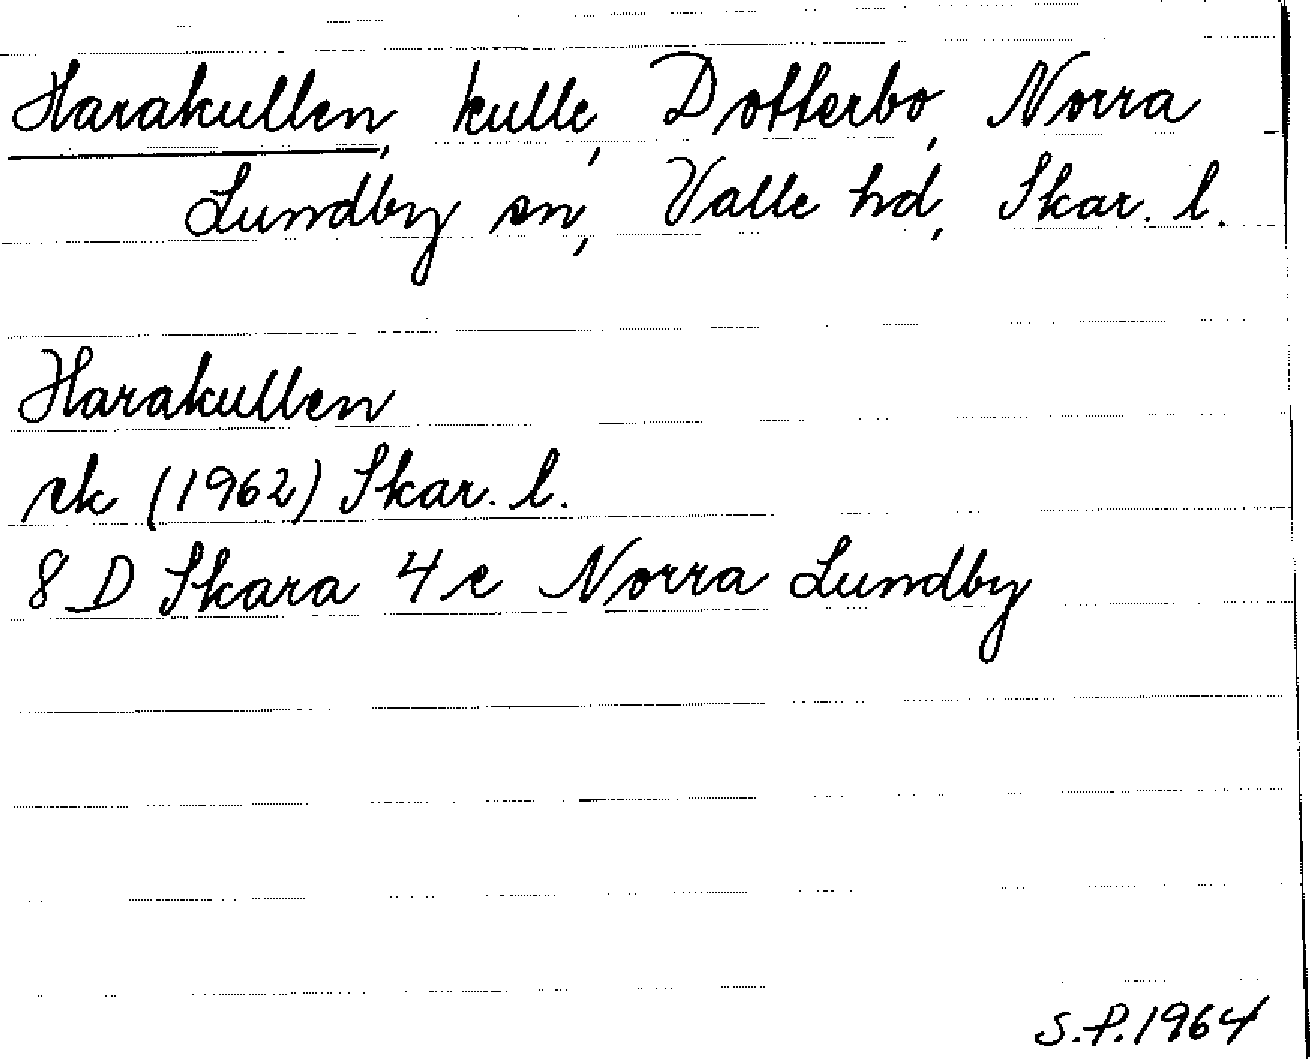 Harakullen, kulle, Dotterbo, Norra
Lundby sn, Valle hd, Skar. l.
Harakullen
ek (1962) Skar. l.
8 D Skara 4 e Norra Lundby
S.P. 1964